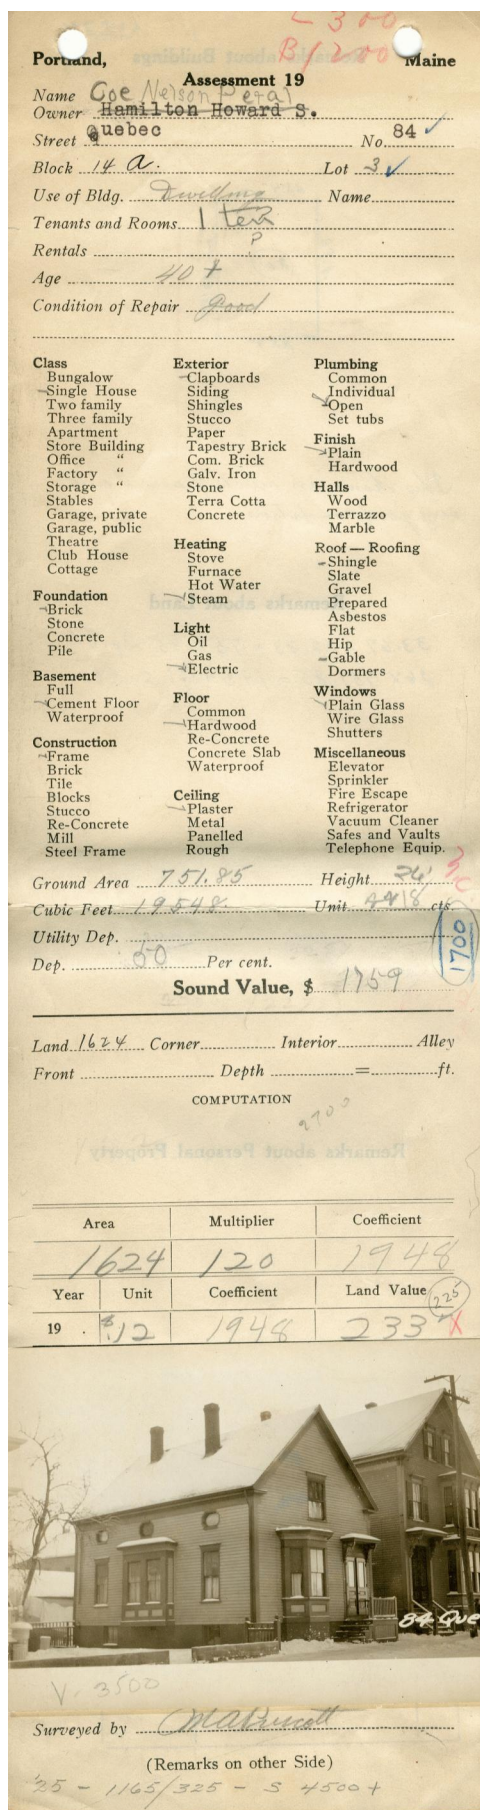 L 300
B 1200
Portland, Maine
Assessment 19
Name Coe Nelson Peral
Owner Hamilton Howard S.
Street Quebec No. 84
Block 14 a. Lot 3
Use of Bldg. Dwelling Name
Tenants and Rooms 1 ten
Rentals
Age 40 +
Condition of Repair Good
Class
Bungalow
Single House
Two family
Three family
Apartment
Store Building
Office "
Factory "
Storage "
Stables
Garage, private
Garage, public
Theatre
Club House
Cottage
Foundation
Brick
Stone
Concrete
Pile
Basement
Full
Cement Floor
Waterproof
Construction
Frame
Brick
Tile
Blocks
Stucco
Re-Concrete
Mill
Steel Frame
Exterior
Clapboards
Siding
Shingles
Stucco
Paper
Tapestry Brick
Com. Brick
Galv. Iron
Stone
Terra Cotta
Concrete
Heating
Stove
Furnace
Hot Water
Steam
Light
Oil
Gas
Electric
Floor
Common
Hardwood
Re-Concrete
Concrete Slab
Waterproof
Ceiling
Plaster
Metal
Panelled
Rough
Plumbing
Common
Individual
Open
Set tubs
Finish
Plain
Hardwood
Halls
Wood
Terrazzo
Marble
Roof — Roofing
Shingle
Slate
Gravel
Prepared
Asbestos
Flat
Hip
Gable
Dormers
Windows
Plain Glass
Wire Glass
Shutters
Miscellaneous
Elevator
Sprinkler
Fire Escape
Refrigerator
Vacuum Cleaner
Safes and Vaults
Telephone Equip.
Ground Area 751.85 Height 26'
Cubic Feet 19548. Unit cts.
Utility Dep.
1700
Dep. 50 Per cent.
Sound Value, $ 1759
Land 1624 Corner Interior Alley
Front Depth = ft.
COMPUTATION
2700
Area Multiplier Coefficient
1624 120 1948
Year Unit Coefficient Land Value 225
19 . $.12 1948 233
84 Que
V. 3500
Surveyed by
(Remarks on other Side)
'25 - 1165/325 - S 4500 +